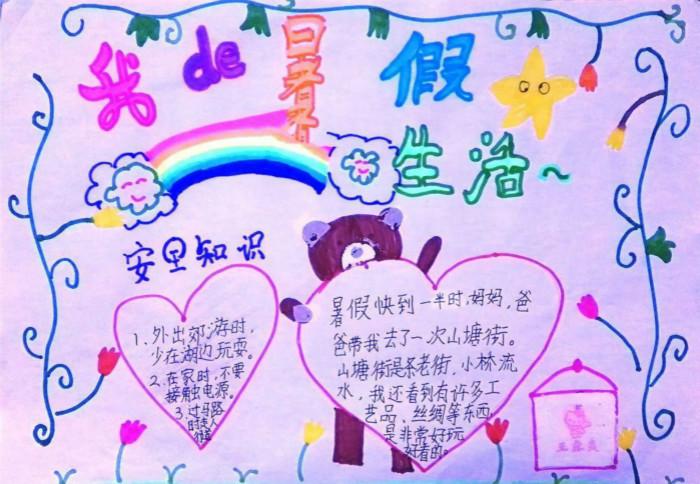 我de暑假
生活~
安全知识
1.外出郊游时,
少在湖边玩耍。
2.在家时,不要
接触电源。
3.过马路
时走人
暑假快到一半时,妈妈,爸
爸带我去了一次山塘街。
山塘街是条老街,小桥流
水,我还看到有许多工
艺品、丝绸等东西,
是非常好玩
好看的。